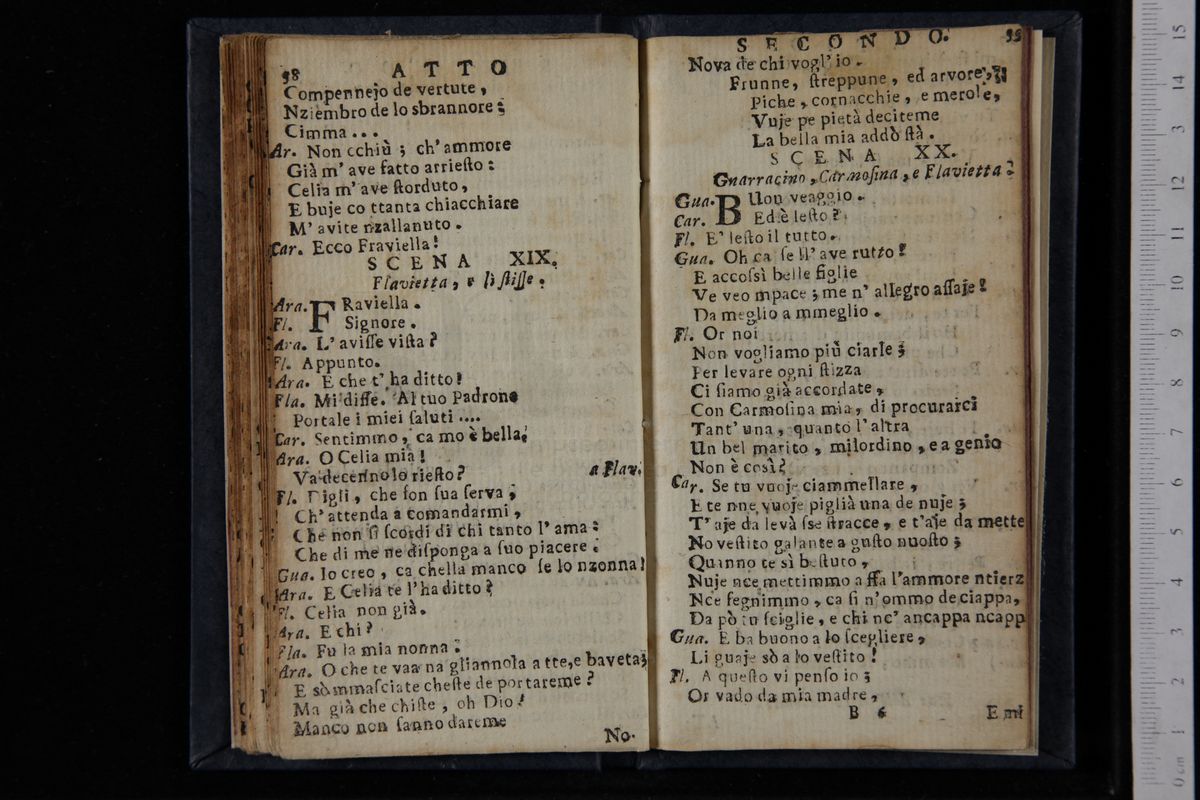 38 ATTO
Compennejo de vertute,
Nziembro de lo sbrannore;
Cimma...
Ar. Non cchiù; ch'ammore
Già m'ave fatto arriesto:
Celia m'ave storduto,
E buje co ttanta chiacchiare
M'avite nzallanuto.
Car. Ecco Fraviella!
SCENA XIX.
Flavietta, e li stisse.
Ara. FRaviella.
Fl. Signore.
Ara. L'avisse vista?
Fl. Appunto.
Ara. E che t'ha ditto?
Fla. Mi disse. Al tuo Padrone
Portale i miei saluti....
Car. Sentimmo, ca mo è bella.
Ara. O Celia mia!
Va decenno lo riesto? a Flav.
Fl. Digli, che son sua serva;
Ch'attenda a comandarmi,
Che non si scordi di chi tanto l'ama:
Che di me ne disponga a suo piacere.
Gua. Io creo, ca chella manco se lo nzonna!
Ara. E Celia te l'ha ditto?
Fl. Celia non già.
Ara. E chi?
Fla. Fu la mia nonna.
Ara. O che te vaa na gliannola a tte, e baveta;
E sò mmasciate cheste de portareme?
Ma già che chiste, oh Dio!
Manco non sanno dareme
No-
SECONDO. 39
Nova de chi vogl'io.
Frunne, streppune, ed arvore,
Piche, cornacchie, e merole,
Vuje pe pietà deciteme
La bella mia addò stà.
SCENA XX.
Guarracino, Carmosina, e Flavietta.
Gua. BUon veaggio.
Car. Ed è lesto?
Fl. E' lesto il tutto.
Gua. Oh ca se ll'ave rutto!
E accossì belle figlie
Ve veo mpace; me n'allegro assaje!
Da meglio a mmeglio.
Fl. Or noi
Non vogliamo più ciarle;
Per levare ogni stizza
Ci siamo già accordate,
Con Carmosina mia, di procurarci
Tant'una, quanto l'altra
Un bel marito, milordino, e a genio
Non è così?
Car. Se tu vuoje ciammellare,
E te nne vuoje piglià una de nuje;
T'aje da levà sse stracce, e t'aje da mette
No vestito galante a gusto nuosto;
Quanno te si bestuto,
Nuje nce mettimmo a ffa l'ammore ntierz
Nce fegnimmo, ca si n'ommo de ciappa,
Da pò tu sciglie, e chi nc'ancappa ncapp
Gua. E ba buono a lo scegliere,
Li guaje sò a lo vestito!
Fl. A questo vi penso io;
Or vado da mia madre,
B 6 E mi